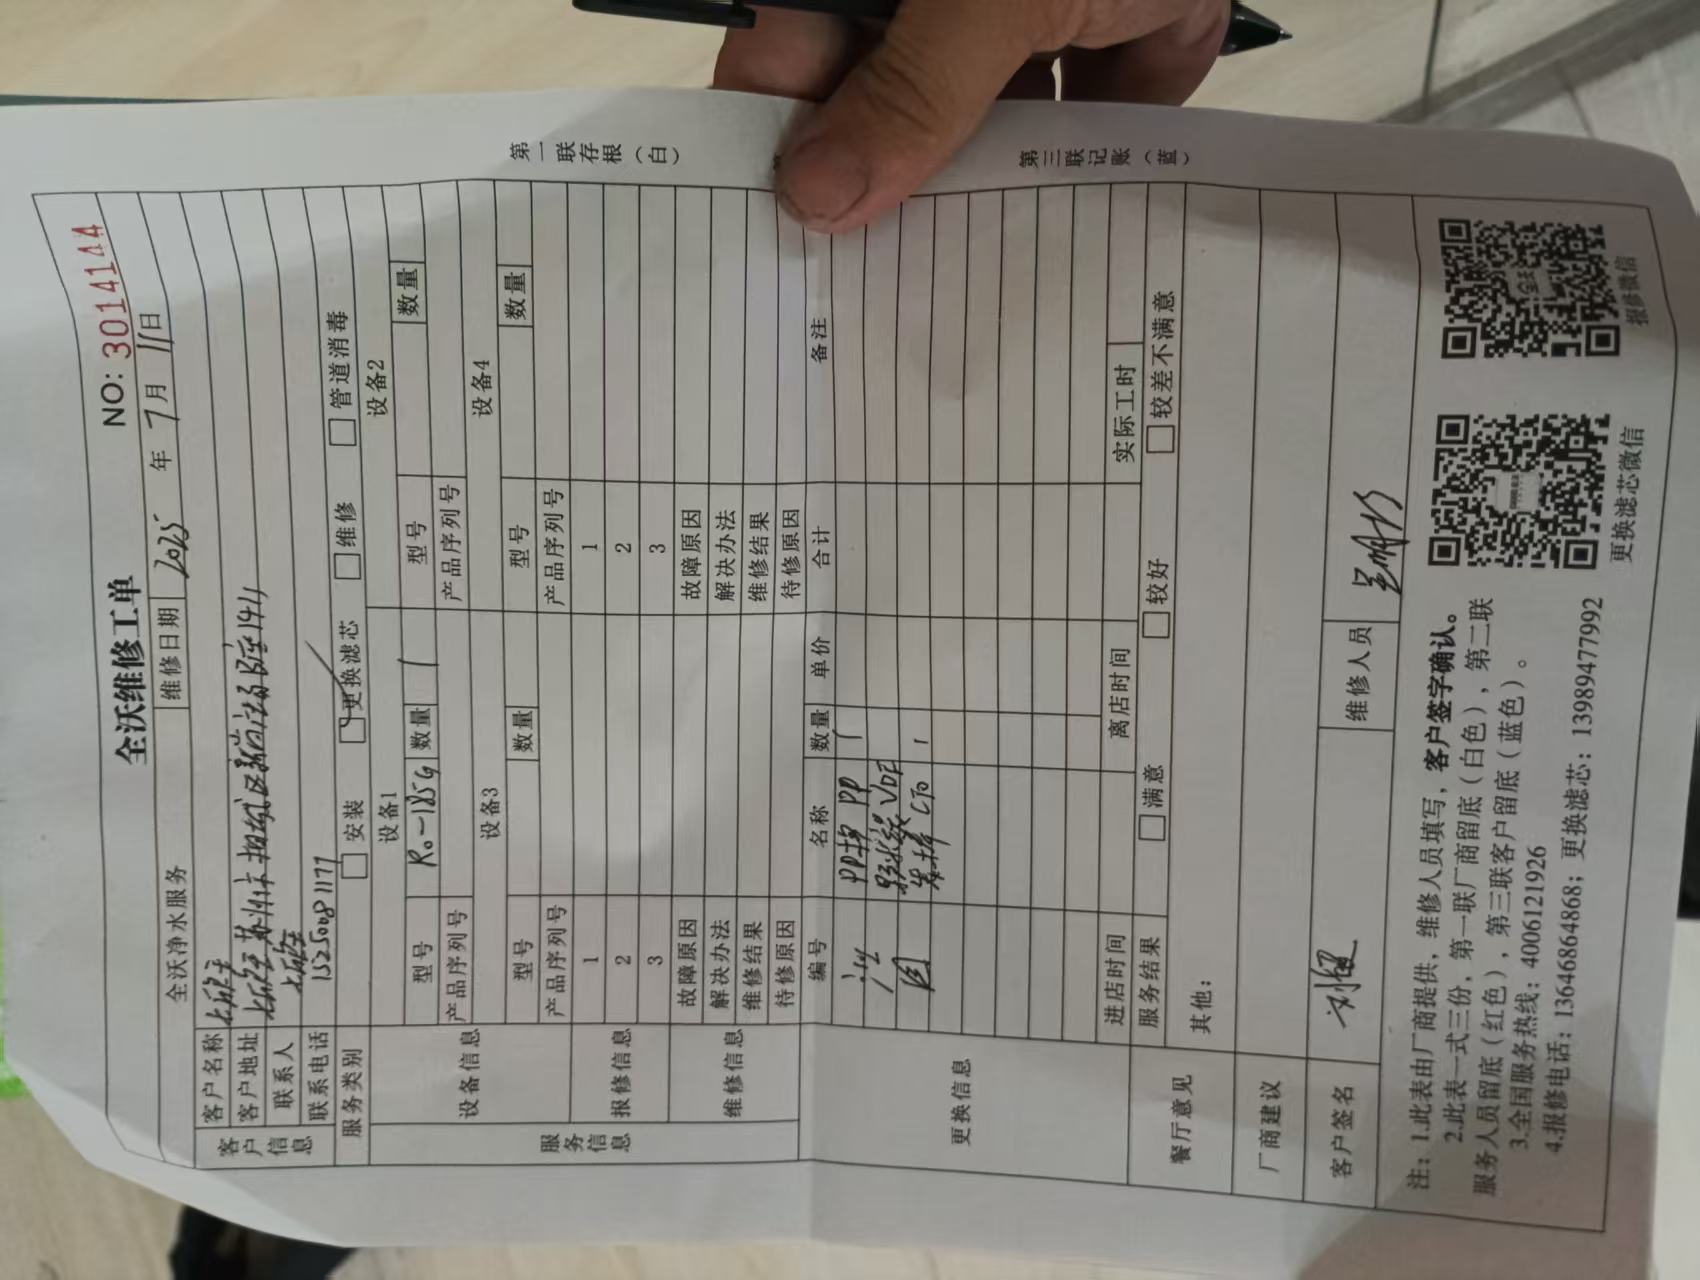 全沃维修工单
NO: 3014144
全沃净水服务 维修日期 2025 年 7 月 11 日
客户信息
客户名称
客户地址
联系人
联系电话 15250081177
服务类别 安装 更换滤芯 维修 管道消毒
服务信息
设备信息
设备1 设备2
型号 RO-185G 数量 1 型号 数量
产品序列号 产品序列号
设备3 设备4
型号 数量 型号 数量
产品序列号 产品序列号
报修信息
1 1
2 2
3 3
维修信息
故障原因 故障原因
解决办法 解决办法
维修结果 维修结果
待修原因 待修原因
更换信息
编号 名称 数量 单价 合计 备注
PP棉 PP 1
CTO 1
进店时间 离店时间 实际工时
餐厅意见
服务结果 满意 较好 较差不满意
其他：
厂商建议
客户签名 维修人员
注：1.此表由厂商提供，维修人员填写，客户签字确认。
2.此表一式三份，第一联厂商留底（白色），第二联
服务人员留底（红色），第三联客户留底（蓝色）。
3.全国服务热线：4006121926
4.报修电话：13646864868；更换滤芯：13989477992
更换滤芯微信
报修微信
第一联存根（白）
第三联记账（蓝）